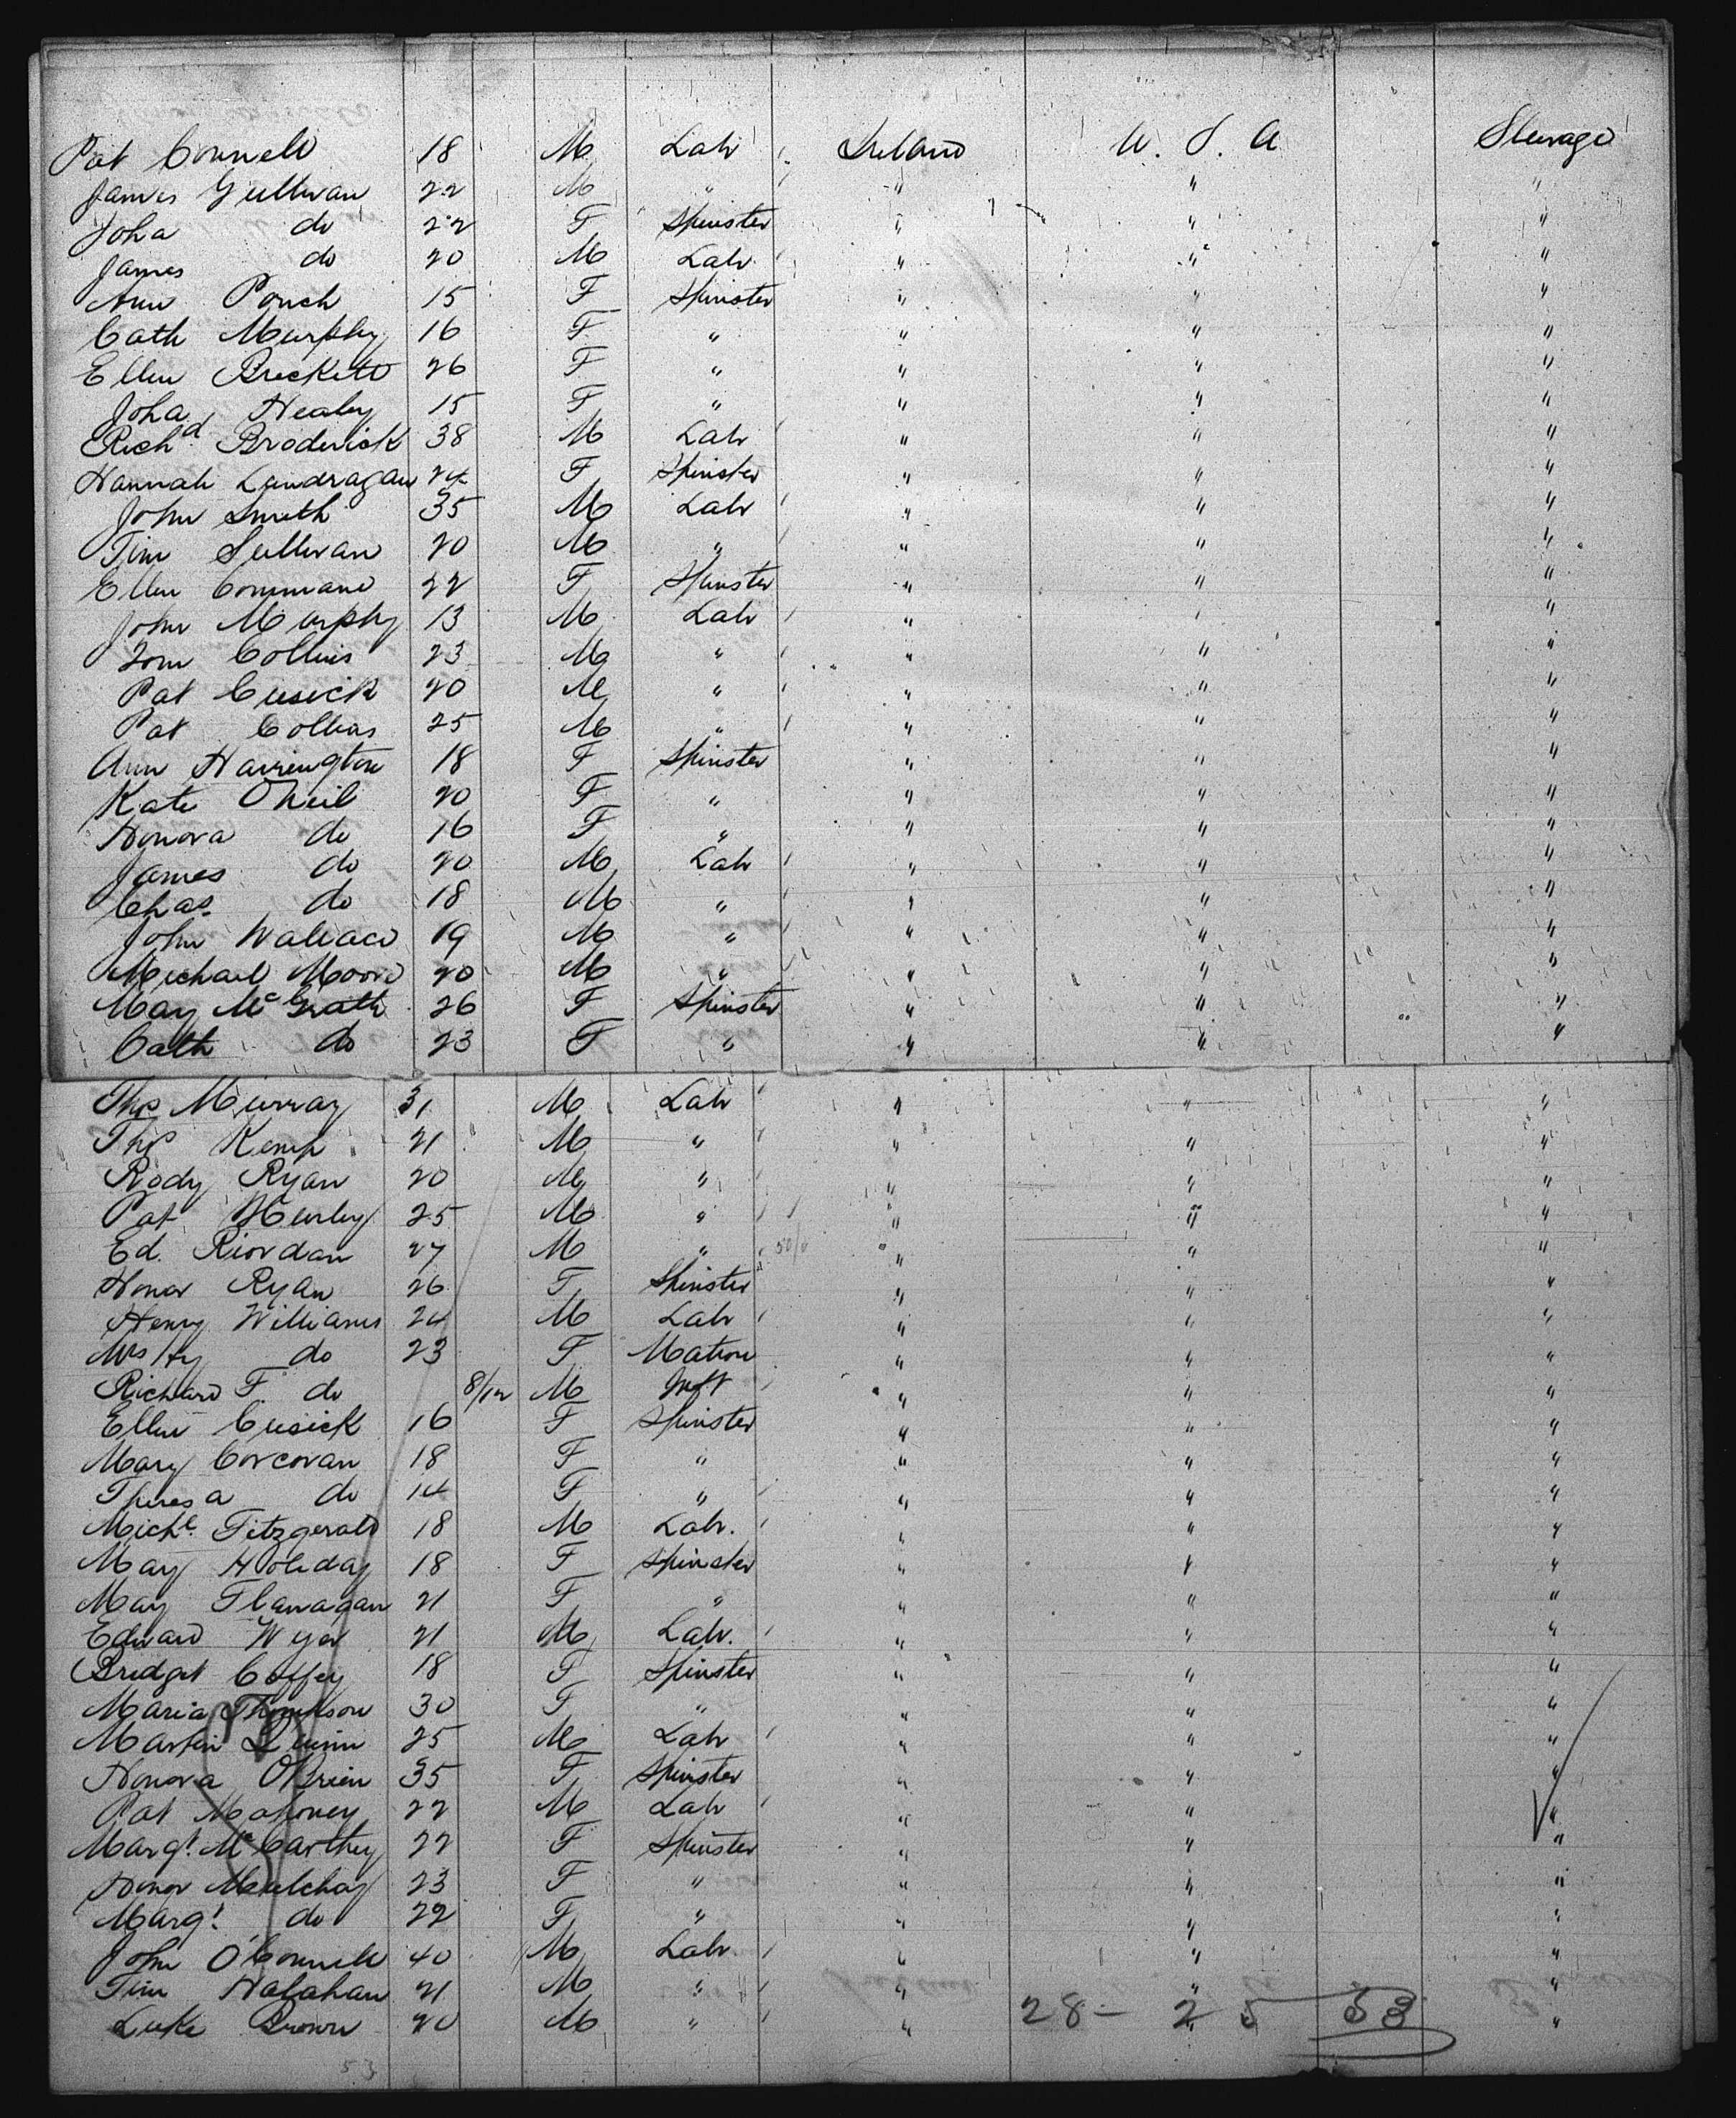 Pat Connell 18 M Labr Ireland U. S. A Steerage
James Sullivan 22 M " " " "
Joha do 22 F Spinster " " "
James do 20 M Labr " " "
Ann Ponch 15 F Spinster " " "
Cath Murphy 16 F " " " "
Ellen Breckett 26 F " " " "
Joha Healy 15 F " " " "
Richd Broderick 38 M Labr " " "
Hannah Landragan 24 F Spinster " " "
John Smith 35 M Labr " " "
Tim Sullivan 20 M " " " "
Ellen Command 22 F Spinster " " "
John Murphy 13 M Labr " " "
Tom Collins 23 M " " " "
Pat Cusick 20 M " " " "
Pat Collins 25 M " " " "
Ann Harrington 18 F Spinster " " "
Kate ONeil 20 F " " " "
Honora do 16 F " " " "
James do 20 M Labr " " "
Chas do 18 M " " " "
John Wallace 19 M " " " "
Michael Moore 20 M " " " "
Mary McGrath 26 F Spinster " " "
Cath do 23 F " " " "
Thos Murray 31 M Labr " " "
Thos Kemp 21 M " " " "
Rody Ryan 20 M " " " "
Pat Hurley 25 M " " " "
Ed. Riordan 27 M " " " "
Honor Ryan 26 F Spinster " " "
Henry Williams 24 M Labr " " "
Mrs Hy do 23 F Matron " " "
Richard F. do 8/12 M Inft " " "
Ellen Cusick 16 F Spinster " " "
Mary Corcoran 18 F " " " "
Theresa do 14 F " " " "
Michl. Fitzgerald 18 M Labr. " " "
Mary Holiday 18 F Spinster " " "
Mary Flanagan 21 F " " " "
Edward Wyer 21 M Labr. " " "
Bridget Coffey 18 F Spinster " " "
Maria Thompson 30 F " " " "
Martin Quinn 25 M Labr " " "
Honora OBrien 35 F Spinster " " "
Pat Mahoney 22 M Labr " " "
Margt. McCarthey 22 F Spinster " " "
Honor Mulchay 23 F " " " "
Margt. do 22 F " " " "
John O'Connell 40 M Labr. " " "
Tim Halahan 21 M " " " "
Luke Brown 20 M " " " "
28 - 25 53
53